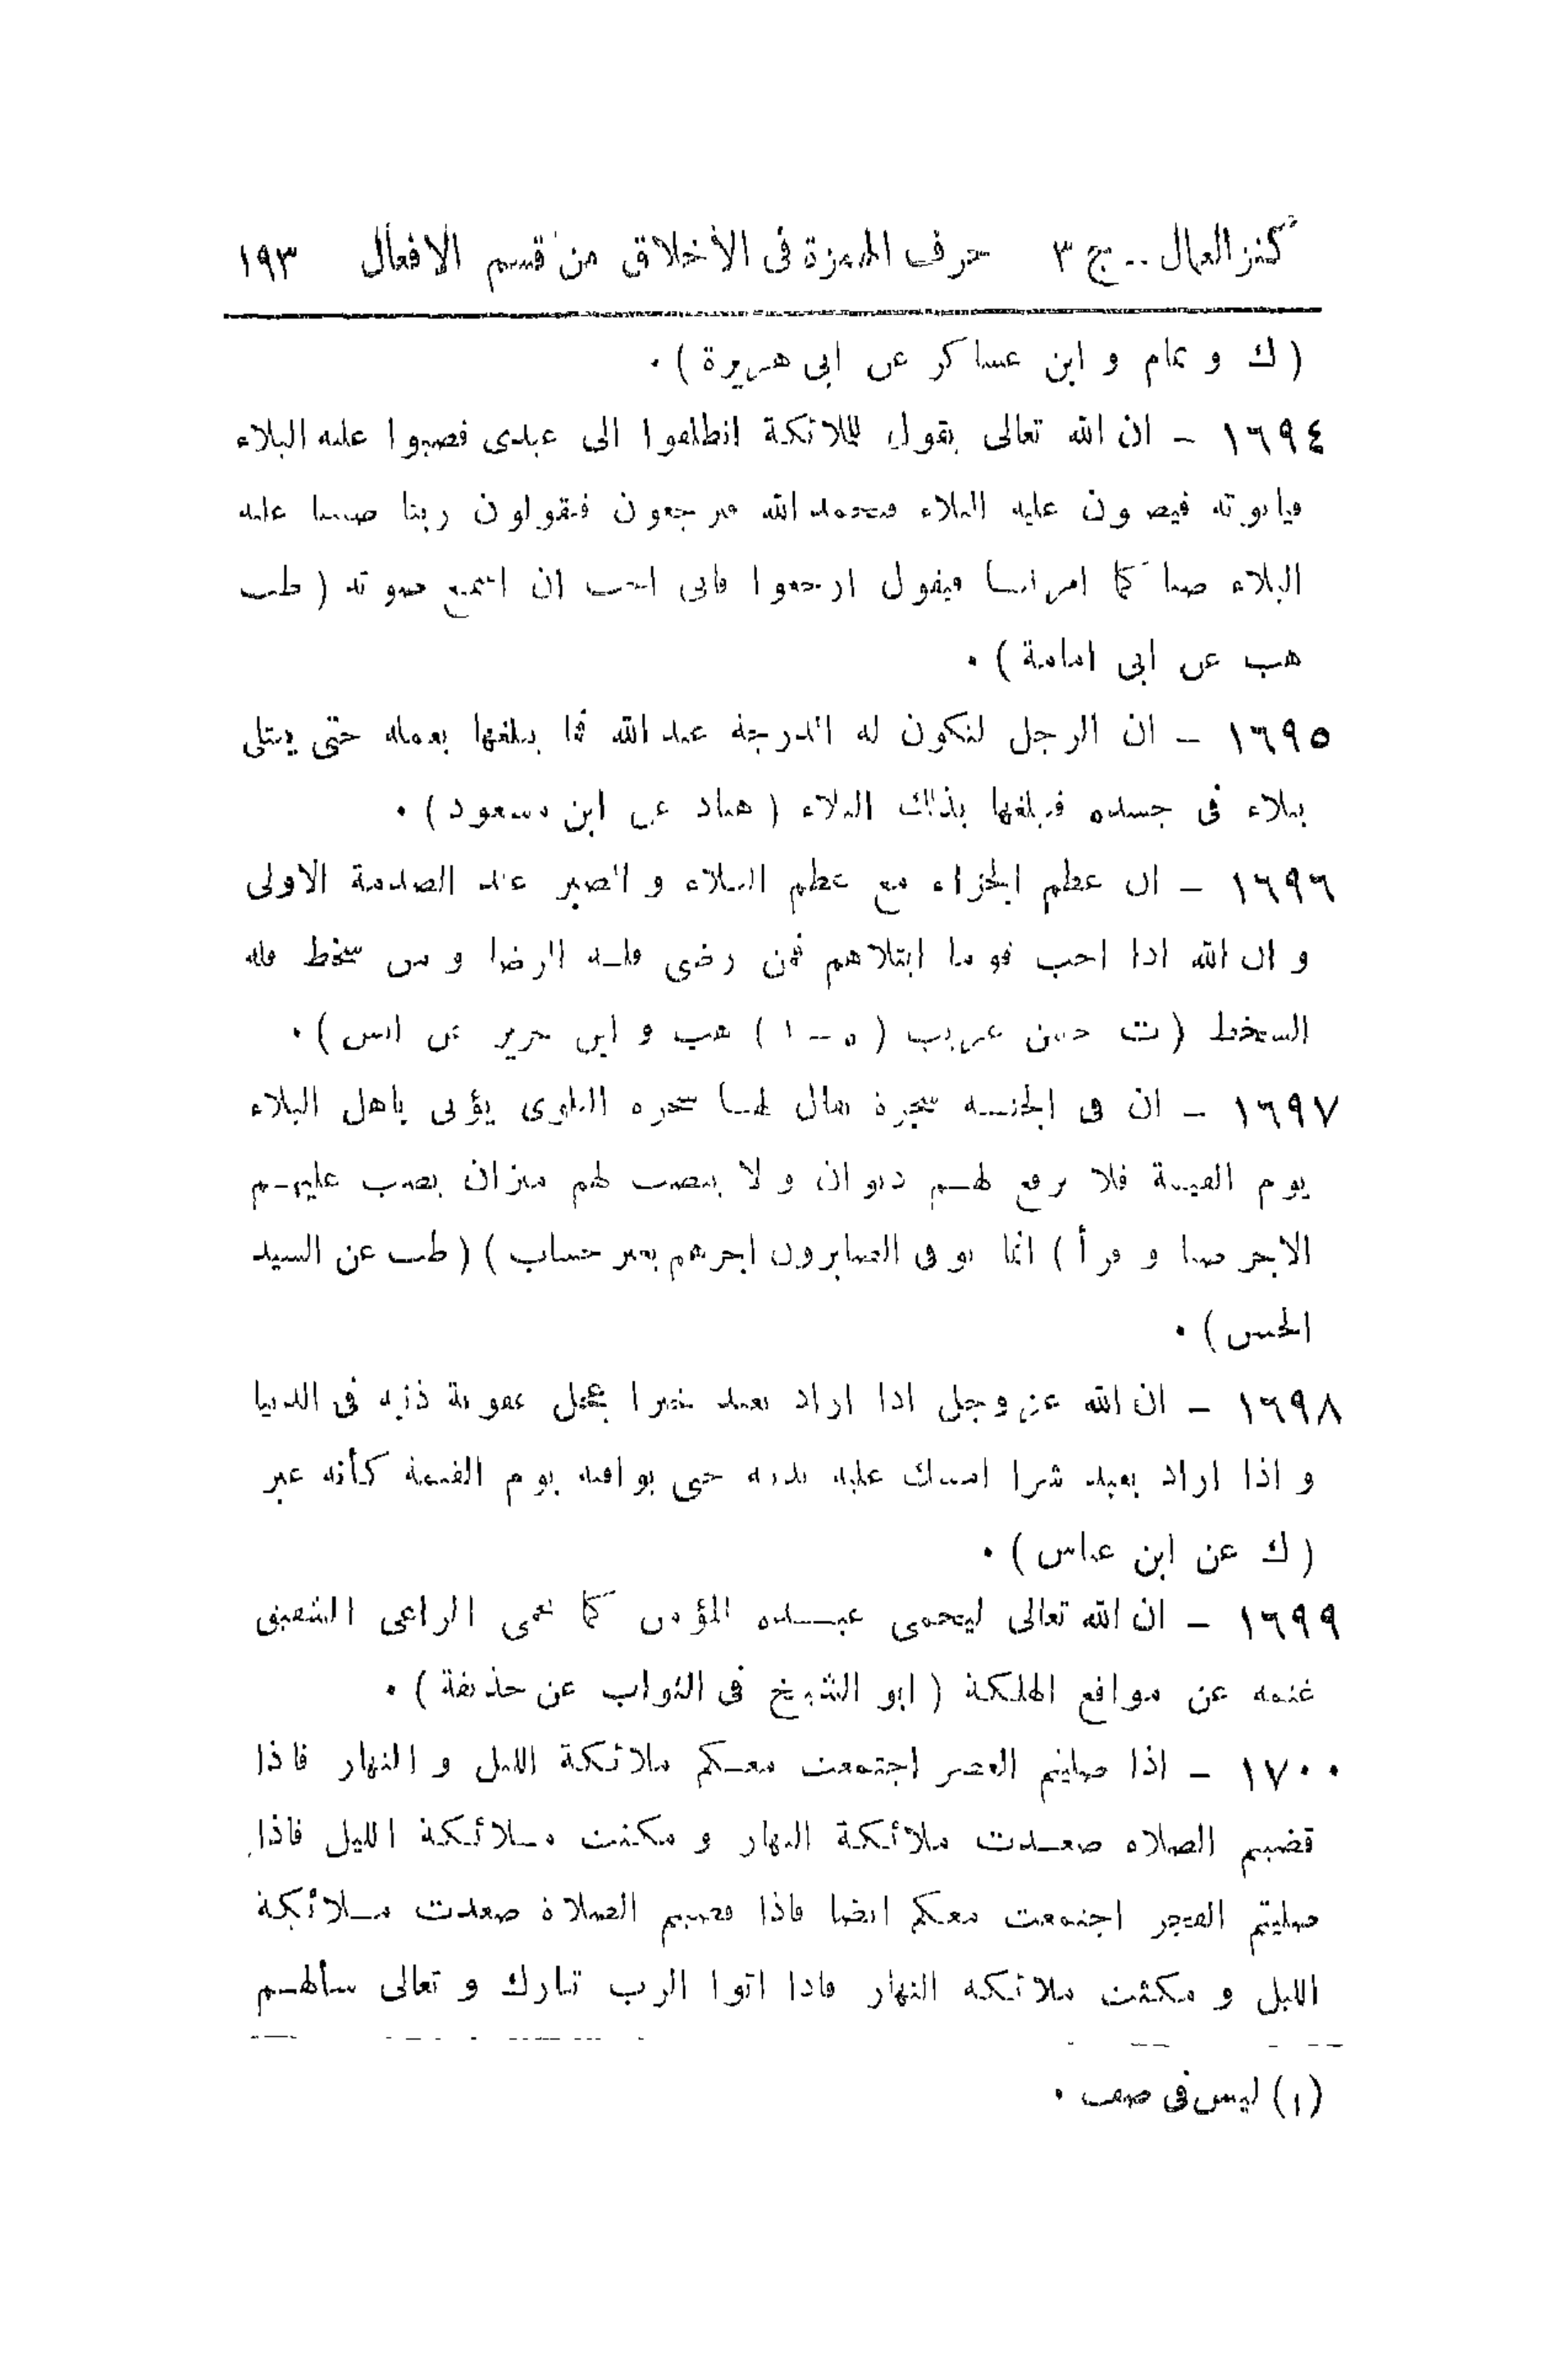 كنز العمال .. ج ٣ حرف الهمزة فى الأخلاق من قسم الافعال ١٩٣
( ك و تمام و ابن عساكر عن ابى هريرة ) .
١٦٩٤ - ان الله تعالى يقول للملائكة انطلقوا الى عبدى فصبوا عليه البلاء
فيأتونه فيصبون عليه البلاء فيحمد الله فيرجعون فيقولون ربنا صببنا عليه
البلاء صبا كما امرتنا فيقول ارجعوا فانى احب ان اسمع صوته ( طب
هب عن ابى امامة ) .
١٦٩٥ - ان الرجل لتكون له الدرجة عند الله فما يبلغها بعمله حتى يبتلى
ببلاء فى جسده فيبلغها بذلك البلاء ( هناد عن ابن مسعود ) .
١٦٩٦ - ان عظم الجزاء مع عظم البلاء و الصبر عند الصدمة الاولى
و ان الله اذا احب قوما ابتلاهم فمن رضى فله الرضا و من سخط فله
السخط ( ت حسن غريب ( ٥ - ١ ) هب و ابن جرير عن انس ) .
١٦٩٧ - ان فى الجنة شجرة يقال لها شجرة البلوى يؤتى باهل البلاء
يوم القيمة فلا يرفع لهم ديوان و لا ينصب لهم ميزان يصب عليهم
الاجر صبا و قرأ ) انما يوفى الصابرون اجرهم بغير حساب ) ( طب عن السيد
الحسن ) .
١٦٩٨ - ان الله عز وجل اذا اراد بعبد خيرا عجل عقوبة ذنبه فى الدنيا
و اذا اراد بعبد شرا امسك عليه بذنبه حتى يوافيه يوم القيمة كأنه عير
( ك عن ابن عباس ) .
١٦٩٩ - ان الله تعالى ليحمى عبده المؤمن كما يحمى الراعى الشفيق
غنمه عن مواقع الهلكة ( ابو الشيخ فى الثواب عن حذيفة ) .
١٧٠٠ - اذا صليتم العصر اجتمعت معكم ملائكة الليل و النهار فاذا
قضيتم الصلاه صعدت ملائكة النهار و مكثت ملائكة الليل فاذا
صليتم الفجر اجتمعت معكم ايضا فاذا قضيتم الصلاة صعدت ملائكة
الليل و مكثت ملائكة النهار فاذا اتوا الرب تبارك و تعالى سألهم
(١) ليس فى صف .